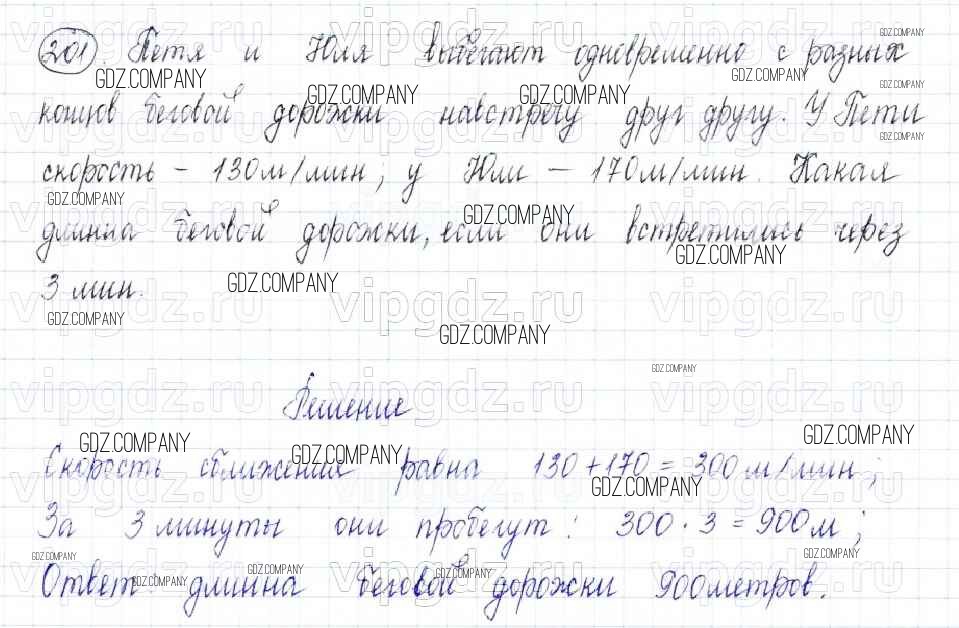 201. Петя и Юля выбегают одновременно с разных
концов беговой дорожки навстречу друг другу. У Пети
скорость – 130м/мин, у Юли – 170м/мин. Какая
длинна беговой дорожки, если они встретились через
3 мин.
Решение
Скорость сближения равна 130+170 = 300 м/мин;
За 3 минуты они пробегут: 300 · 3 = 900м;
Ответ: длинна беговой дорожки 900метров.
GDZ.COMPANY
vipgdz.ru